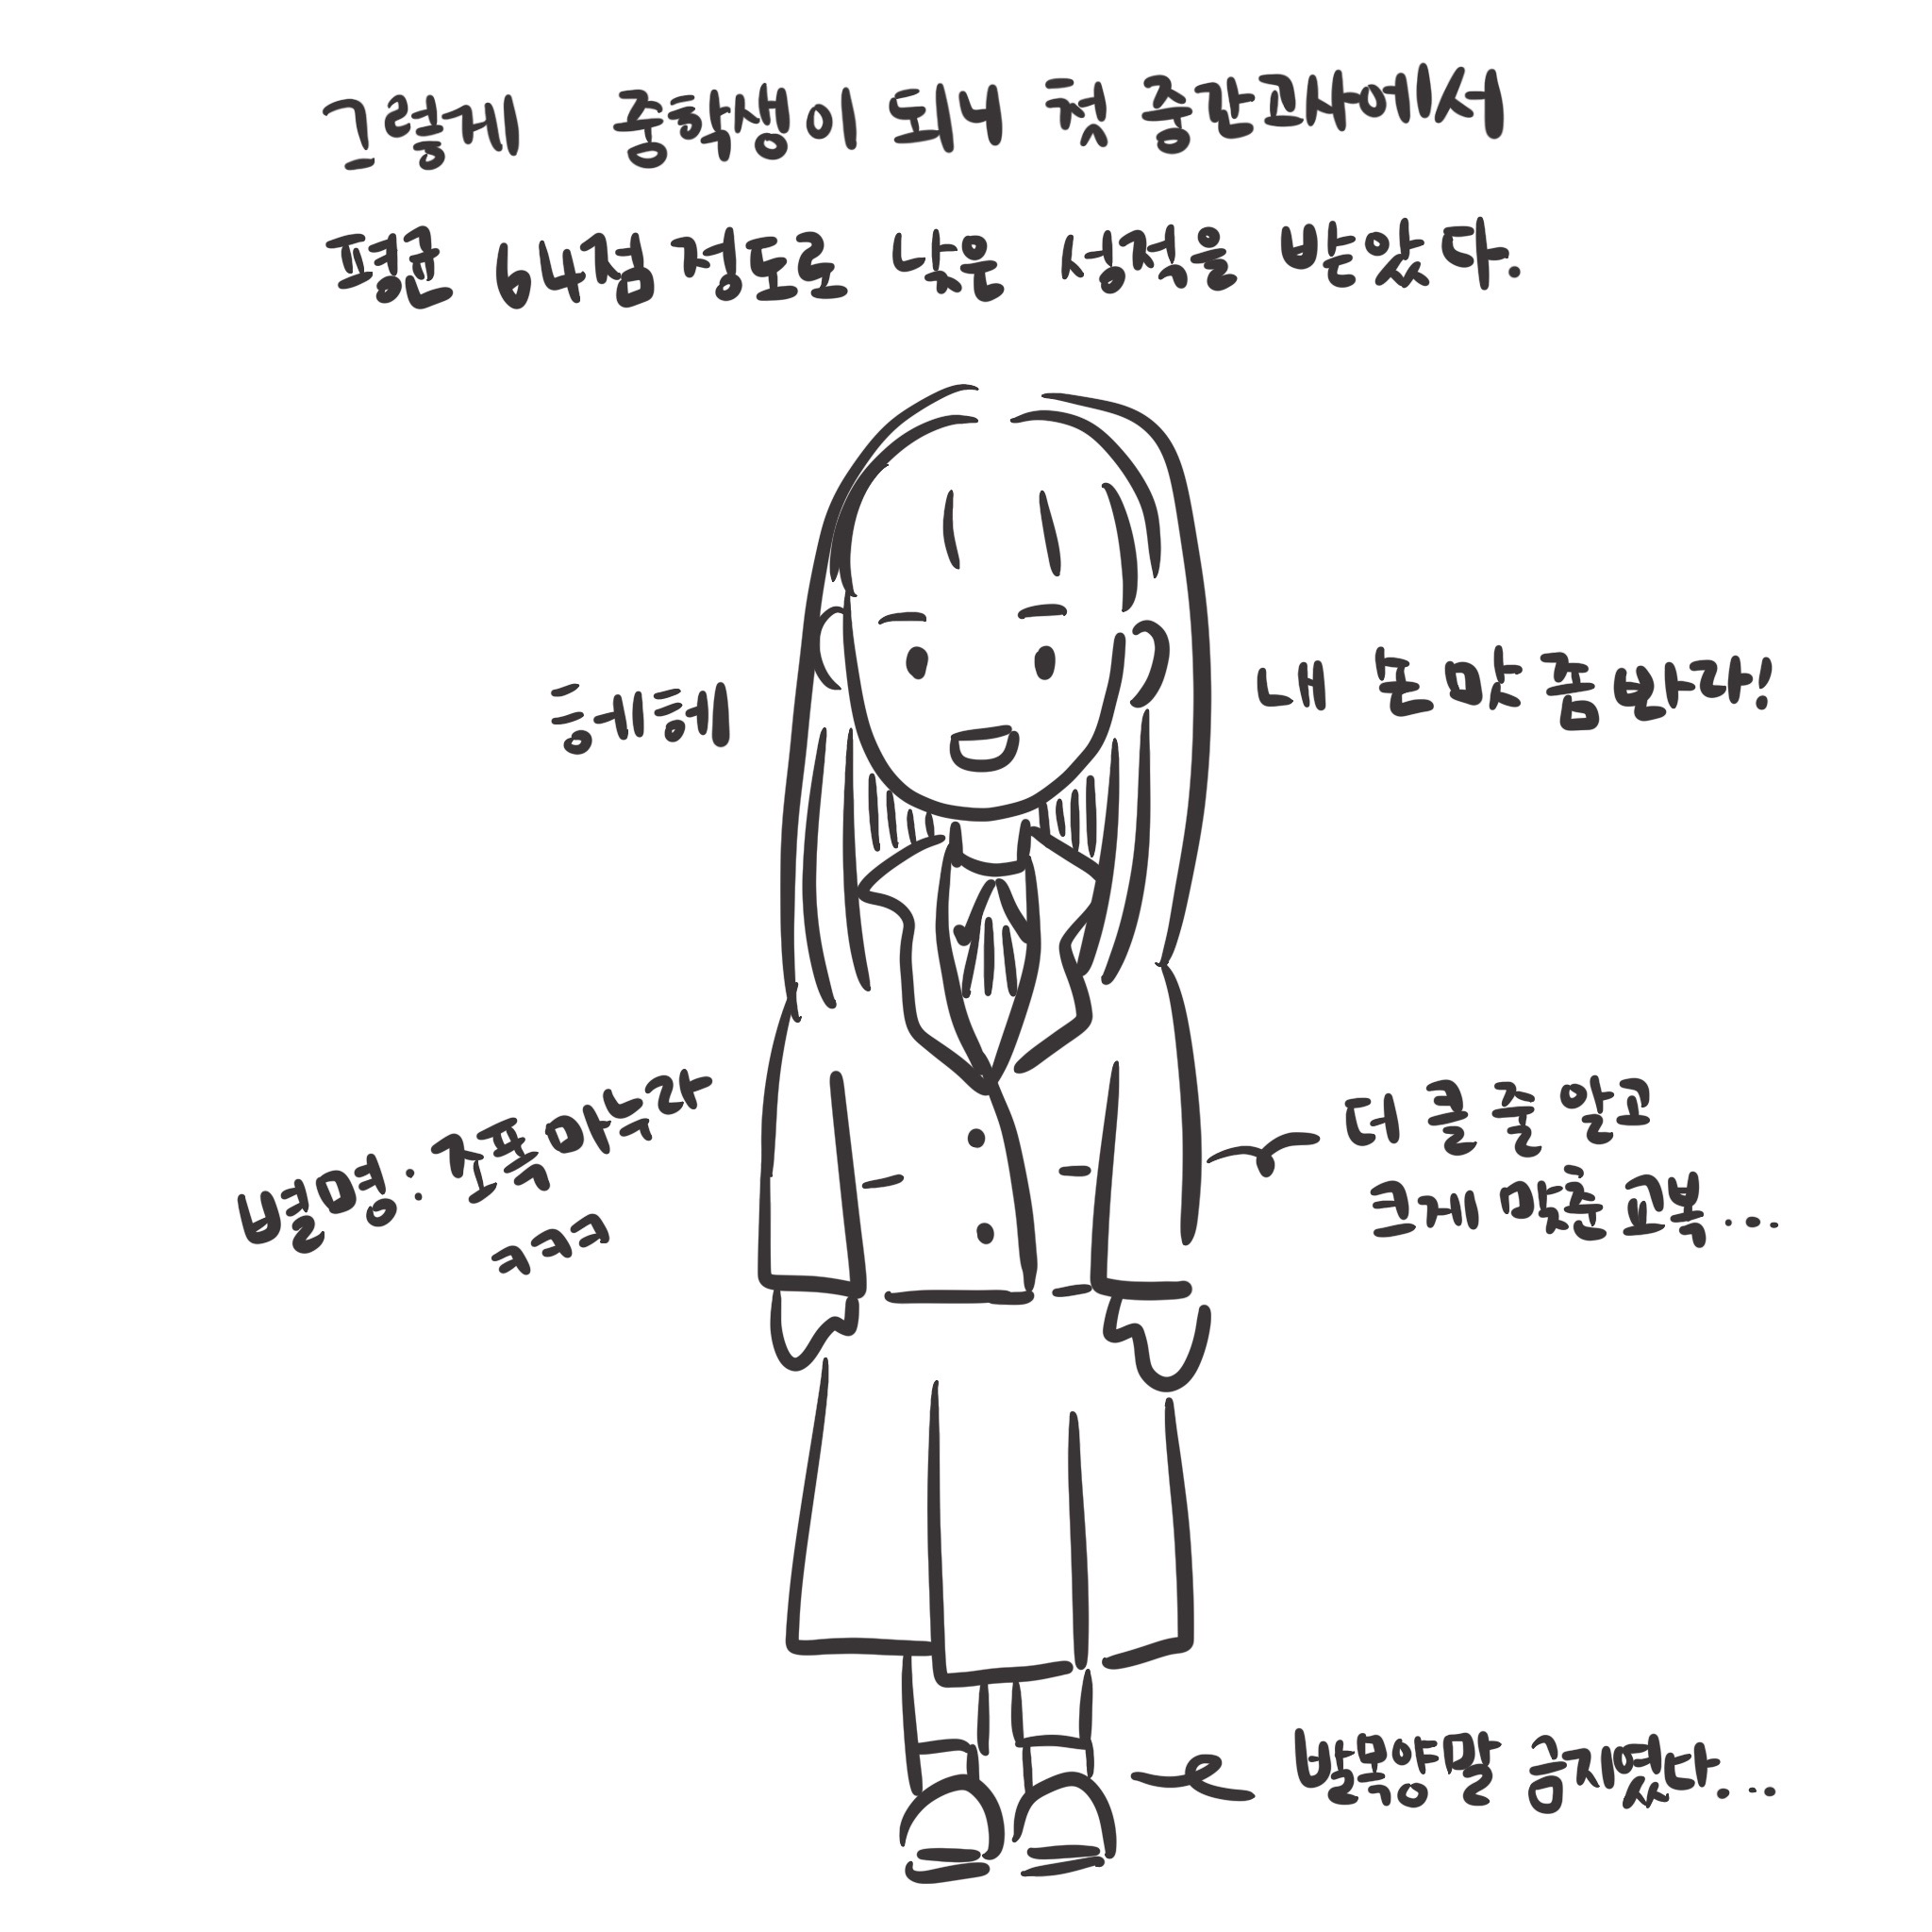 그렇게 중학생이 되니 첫 중간고사에서
평균 64점 정도로 낮은 성적을 받았다.
흥헤헤
내 똥 맛 좀 봐라!
별명: 진홍마녀라
ㅋㅋㅋ
더 클 줄 알고
크게 맞춘 교복...
발목양말 금지였다...